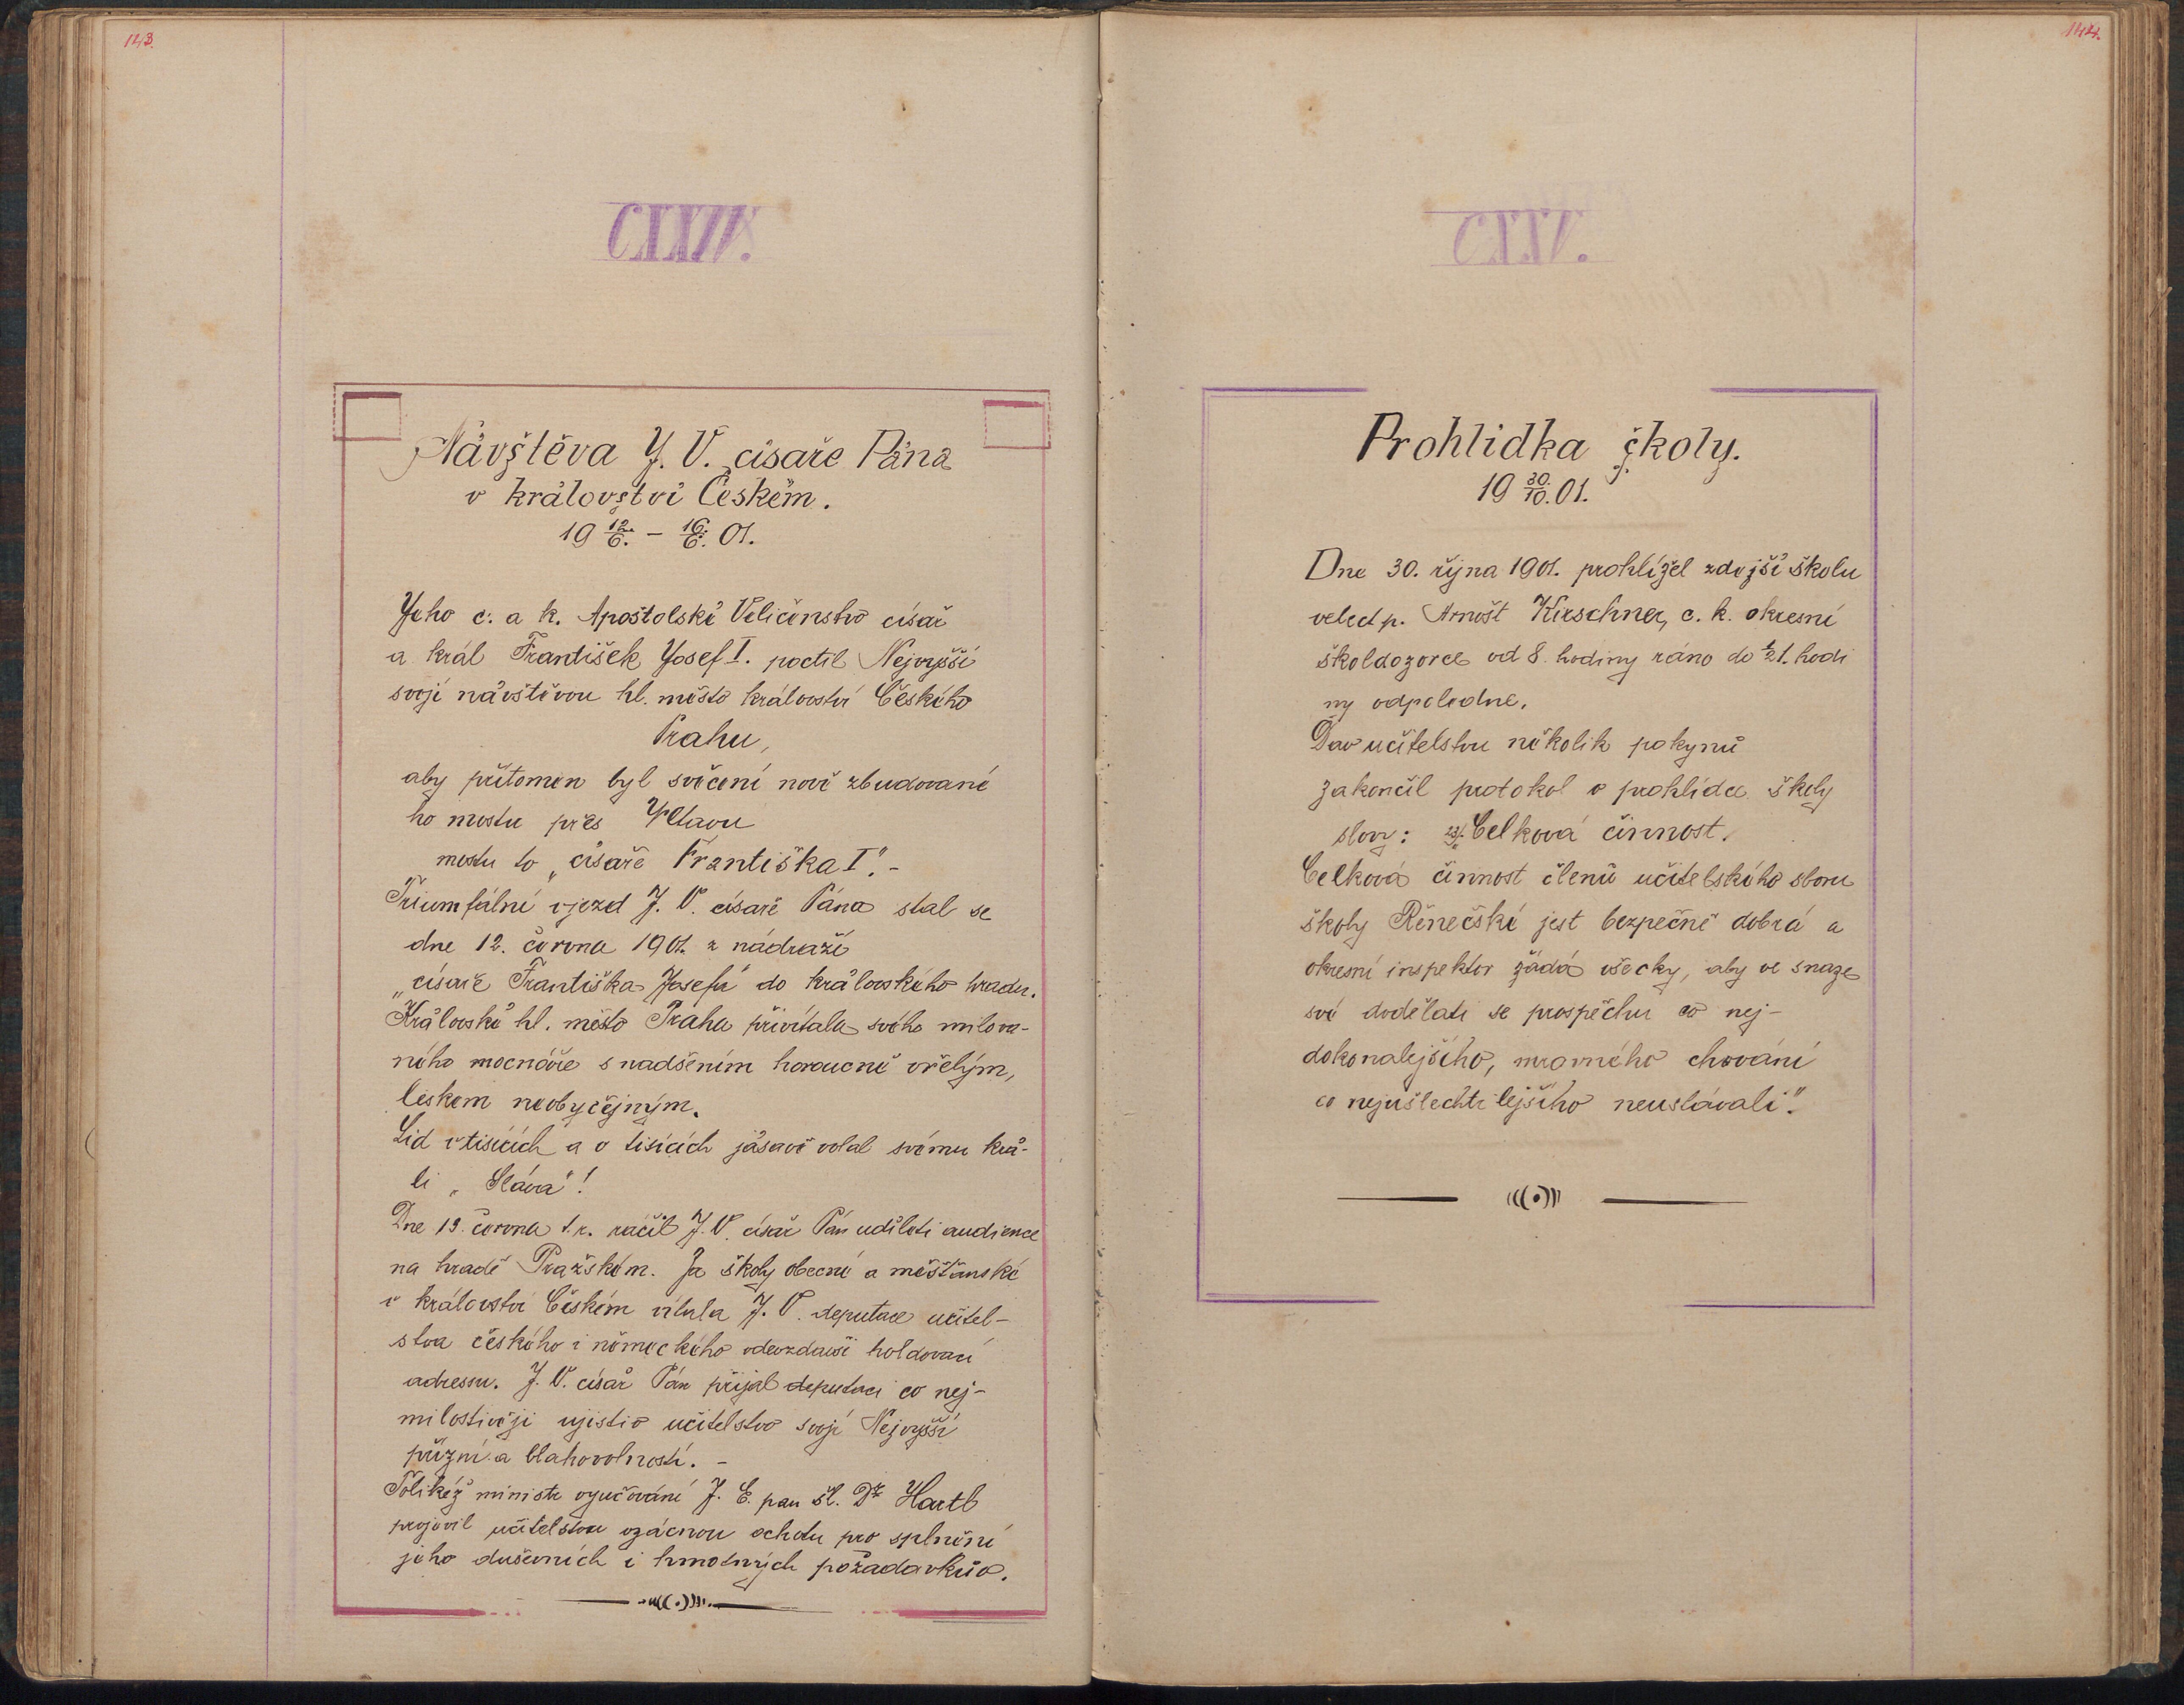 143.
CXXIV.
Návštěva J. V. císaře Pána
v království Českém.
19 12./6. – 16./6. 01.
Jeho c. a k. Apoštolské Veličenstvo císař
a král František Josef I. poctil Nejvyšší
svojí návštěvou hl. město království Českého
Prahu,
aby přítomen byl svěcení nově zbudované
ho mostu přes Vltavu
mostu to „císaře Františka I." –
Triumfální vjezd J. V. císaře Pána stal se
dne 12. června 1901. z nádraží
„císaře Františka Josefa" do královského hradu.
Královské hl. město Praha přivítala svého milova-
ného mocnáře s nadšením horoucně vřelým,
leskem neobyčejným.
Lid v tisících a v tisících jásavě volal svému krá-
li „Sláva"!
Dne 13. června t. r. ráčil J. V. císař Pán uděliti audience
na hradě Pražském. Za školy obecné a měšťanské
v království Českém vítala J. V. deputace učitel-
stva českého i německého odevzdavši holdovací
adressu. J. V. císař Pán přijal deputaci co nej-
milostivěji ujistiv učitelstvo svojí Nejvyšší
přízní a blahovolností. –
Tolikéž ministr vyučování J. E. pan šl. Dr Hartl
projevil učitelstvu vzácnou ochotu pro splnění
jeho duševních i hmotných požadavkův.
144.
CXXV.
Prohlídka školy.
19 30./10. 01.
Dne 30. října 1901. prohlížel zdejší školu
velect p. Arnošt Kirschner, c. k. okresní
školdozorce od 8. hodiny ráno do ½1. hodi
ny odpoledne.
Dav učitelstvu několik pokynů
zakončil protokol o prohlídce školy
slovy: Celková činnost.
Celková činnost členů učitelského sboru
školy Řenečské jest bezpečně dobrá a
okresní inspektor žádá všecky, aby ve snaze
své dodělati se prospěchu co nej-
dokonalejšího, mravného chování
co nejušlechtilejšího neustávali."